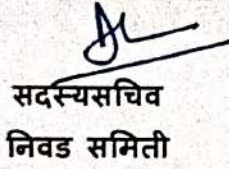 सदस्यसचिव
निवड समिती